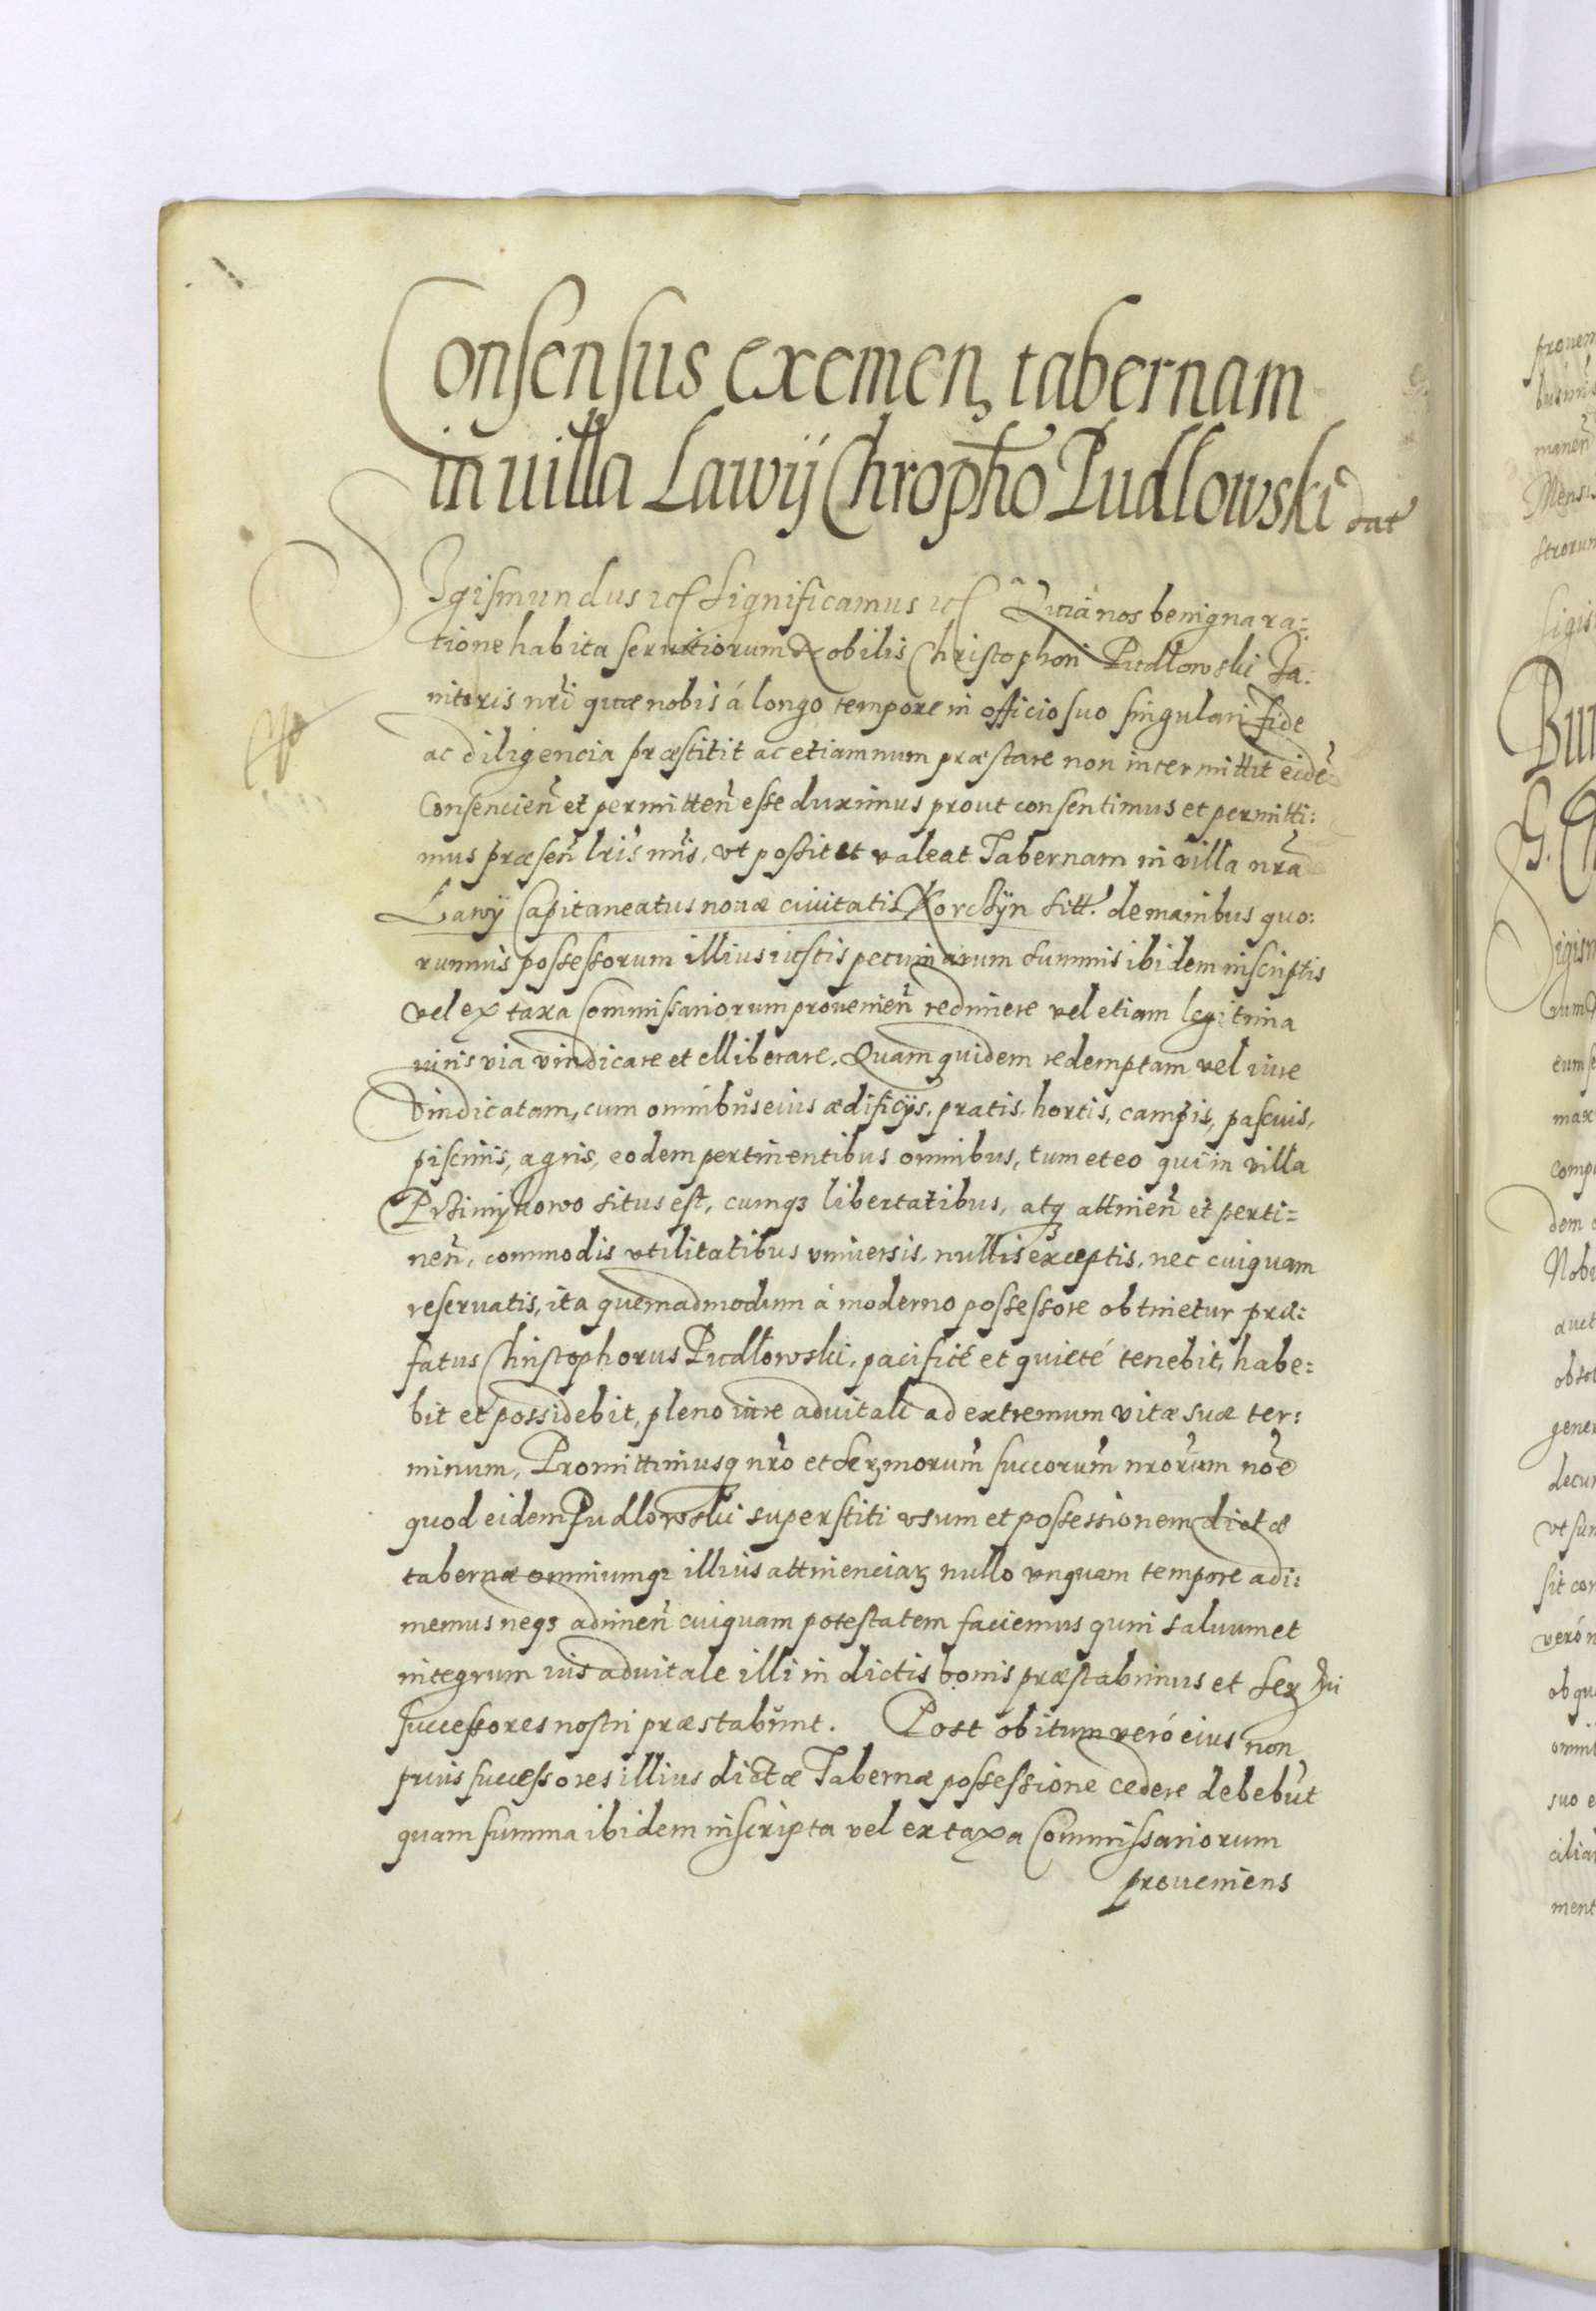 Consensus exemen, tabernam
in uilla Lawÿ Chrophō Pudlowski dat
Sigismundus etc Significamus etc Quia nos benigna ra:
tione habita seruitiorum Nobilis Christophori Pudlowski Ja:
nitoris nr̃i quæ nobis á longo tempore in officio suo singulari fide
ac diligencia præstitit ac etiamnum præstare non intermittit eidẽ
Consencieñ et permitteñ esse duximus prout consentimus et permitti:
mus præseñ lr̃is nr̃is, vt possit et valeat Tabernam in villa nr̃a
Lawÿ Capitaneatus nouæ ciuitatis Korczÿn sitt. de manibus quo:
rumuis possessorum illius iustis pecuniarum summis ibidem inscriptis
vel ex taxa Commissariorum prouenieñ redimere vel etiam legitima
iuris via vindicare et elliberare. Quam quidem redemptam vel iure
Vindicatam, cum omnibus eius ædificÿs, pratis, hortis, campis, pascuis,
piscinis, agris, eodem pertinentibus omnibus, tum et eo qui in villa
Przimÿkowo situs est, cumqз libertatibus, atqз attineñ et perti=
neñ, commodis vtilitatibus vniuersis, nullis exceptis, nec cuiquam
reseruatis, ita quemadmodum á moderno possessore obtinetur præ:
fatus Christophorus Pudlowski, pacificé et quieté tenebit, habe=
bit et possidebit, pleno iure aduitali ad extremum vitæ suæ ter:
minum, Promittimusqз nr̃o et Serᷣmorum̃ succorum̃ nrõrum nõe
quod eidem Pudlowski superstiti vsum et possessionem dictæ
tabernæ omniumqз illius attinenciaꝝ nullo vnquam tempore adi:
memus neqз adimeñ cuiquam potestatem faciemus quin saluum et
integrum ius aduitale illi in dictis bonis præstabimus et Ser̃mi
successores nostri præstabunt. Post obitum veró eius non
prius successores illius dictæ Tabernæ possessione cedere debebũt
quam summa ibidem inscripta vel ex taxa Commissariorum
proueniens